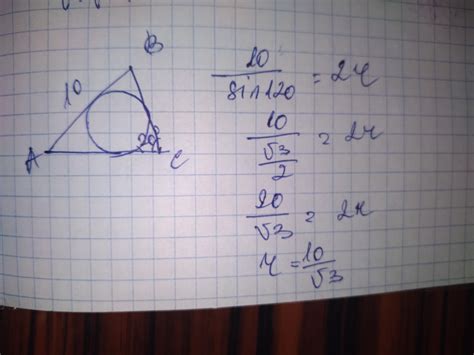 B
10
A
C
10/sin120 = 2r
10/(√3/2) = 2r
20/√3 = 2r
r = 10/√3